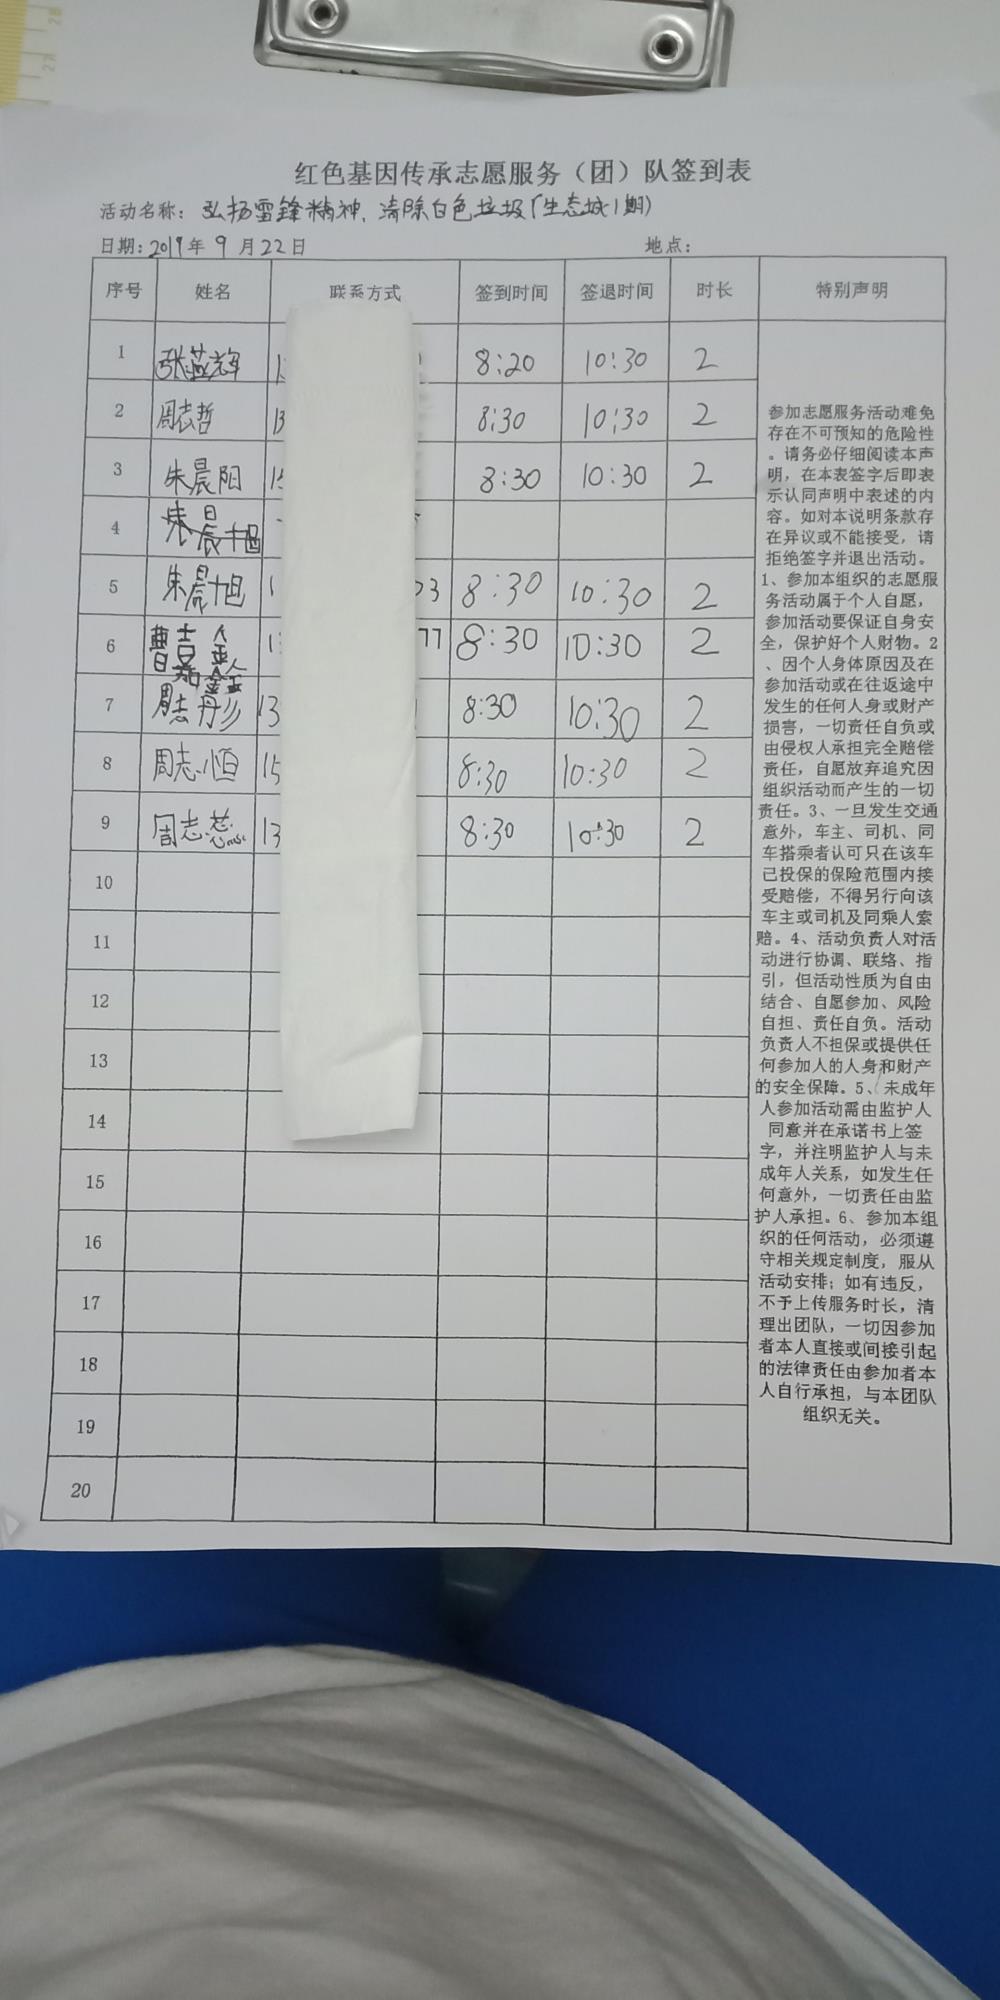 28
27
红色基因传承志愿服务（团）队签到表
活动名称：弘扬雷锋精神、清除白色垃圾「生态城1期）
日期：2019年9月22日 地点：
序号 姓名 联系方式 签到时间 签退时间 时长 特别声明
1 张燕辉 1 8:20 10:30 2
2 周志哲 13 8:30 10:30 2
3 朱晨阳 15 8:30 10:30 2
4 朱晨
5 朱晨旭 1 03 8:30 10:30 2
6 曹嘉鑫 1 77 8:30 10:30 2
7 周志彤 13 8:30 10:30 2
8 周志恒 15 8:30 10:30 2
9 周志蕊 13 8:30 10:30 2
10
11
12
13
14
15
16
17
18
19
20
参加志愿服务活动难免
存在不可预知的危险性
。请务必仔细阅读本声
明，在本表签字后即表
示认同声明中表述的内
容。如对本说明条款存
在异议或不能接受，请
拒绝签字并退出活动。
1、参加本组织的志愿服
务活动属于个人自愿，
参加活动要保证自身安
全，保护好个人财物。2
、因个人身体原因及在
参加活动或在往返途中
发生的任何人身或财产
损害，一切责任自负或
由侵权人承担完全赔偿
责任，自愿放弃追究因
组织活动而产生的一切
责任。3、一旦发生交通
意外，车主、司机、同
车搭乘者认可只在该车
已投保的保险范围内接
受赔偿，不得另行向该
车主或司机及同乘人索
赔。4、活动负责人对活
动进行协调、联络、指
引，但活动性质为自由
结合、自愿参加、风险
自担、责任自负。活动
负责人不担保或提供任
何参加人的人身和财产
的安全保障。5、未成年
人参加活动需由监护人
同意并在承诺书上签
字，并注明监护人与未
成年人关系，如发生任
何意外，一切责任由监
护人承担。6、参加本组
织的任何活动，必须遵
守相关规定制度，服从
活动安排；如有违反，
不予上传服务时长，清
理出团队，一切因参加
者本人直接或间接引起
的法律责任由参加者本
人自行承担，与本团队
组织无关。